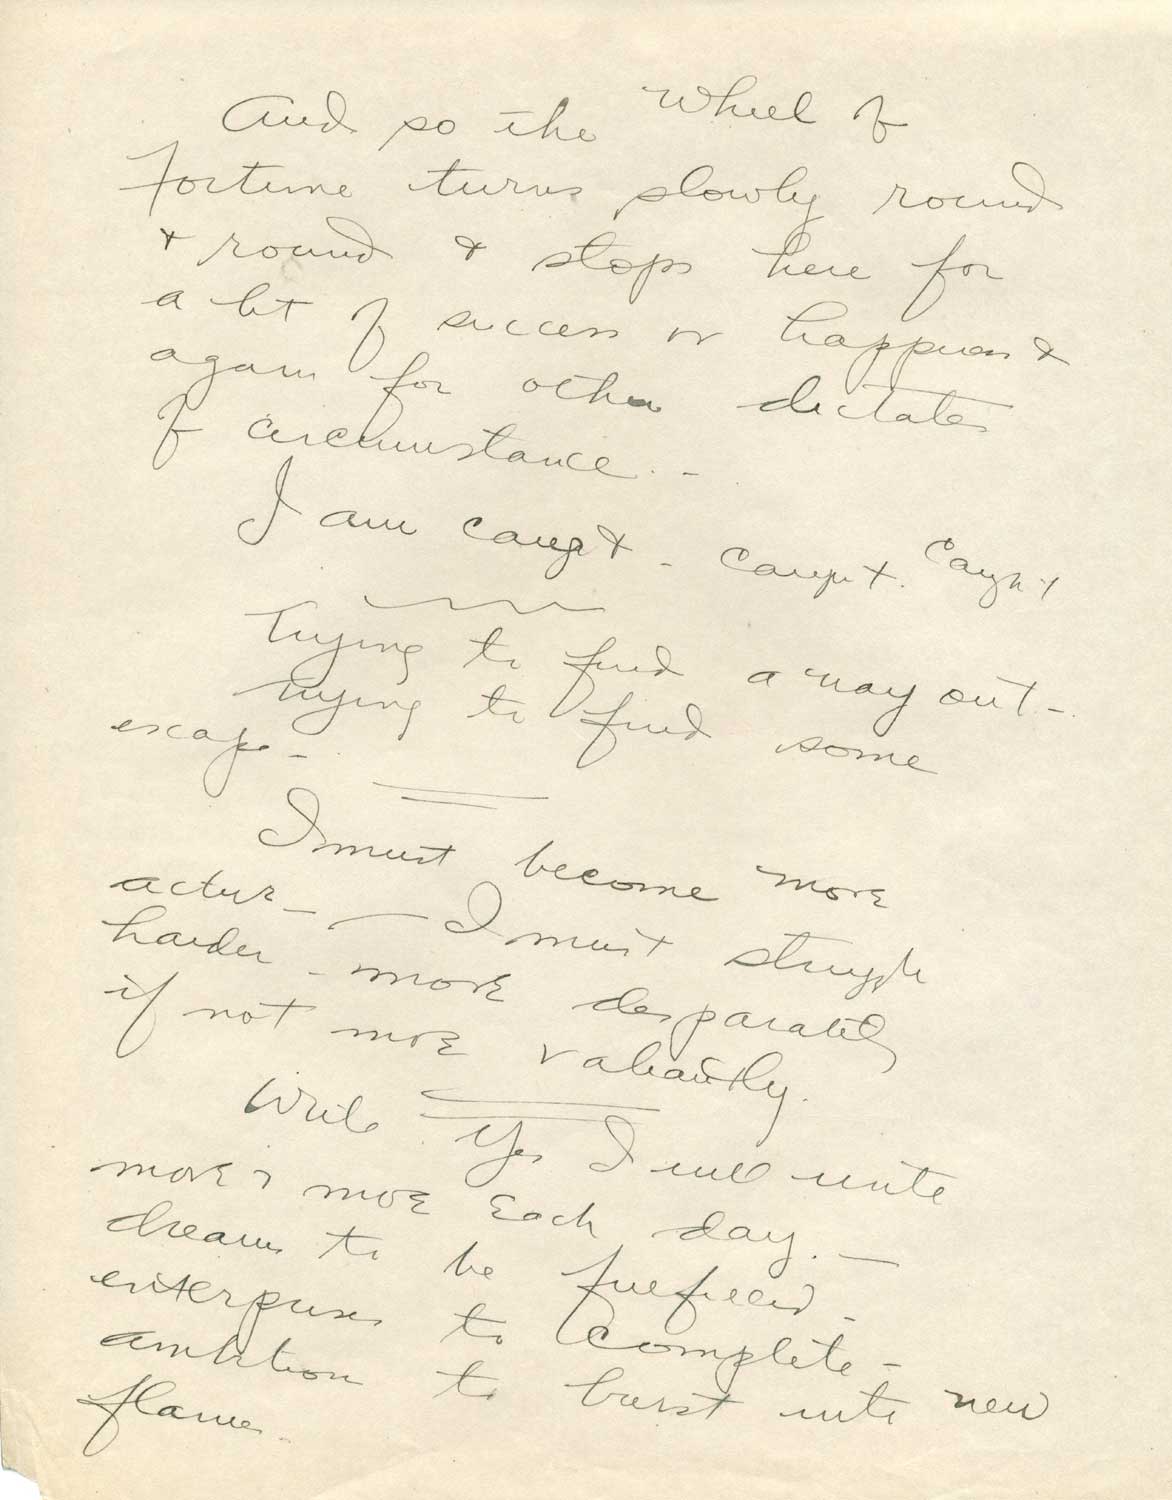 And so the Wheel of
Fortune turns slowly round
& round & stops here for
a bit of success or happiness &
again for other dictates
of circumstance. -
I am caught - caught. Caught
Trying to find a way out -
trying to find some
escape -
I must become more
active - - I must struggle
harder - more desparately
if not more valiantly.
Write Yes I will write
more & more each day. -
dreams to be fulfilled -
enterprises to complete -
ambition to burst into new
flame.